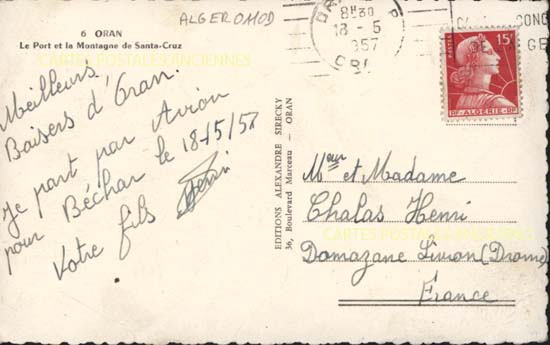 ALGEROMOD
6 ORAN
Le Port et la Montagne de Santa-Cruz
CARTES POSTALES ANCIENNES
Meilleurs
Baisers d'Oran.
Je part par Avion
pour Béchar le 18/5/57
Votre fils Henri
EDITIONS ALEXANDRE SIRECKY
36, Boulevard Marceau — ORAN
8H30
18-5
1957
POSTES
15F
RF-ALGÉRIE-RF
Meur et Madame
Chalas Henri
CARTES POSTALES ANCIENNES
Domazane Livron (Drome)
France